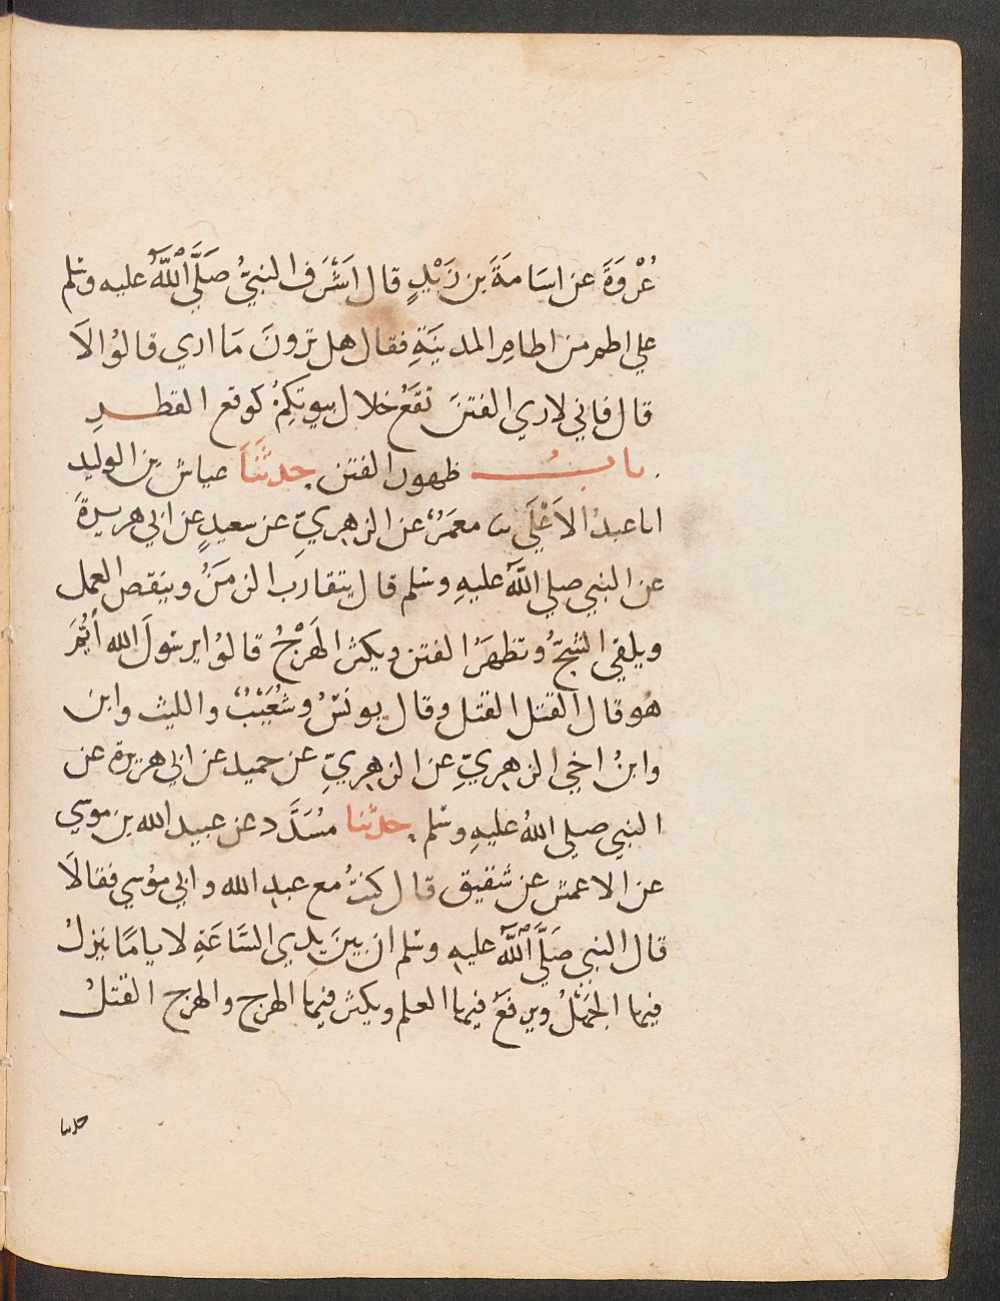 عُرْوَةَ عن اسَامَةَ بن زَيْدٍ قال اَشْرَف النبيُّ صَلَّي اللَّهُ عليه وسَلم
علي اطم من اطامِ المدينَةِ فقال هل ترونَ مَا اري قالوُ الاَ
قال فاني لاري الفتنَ تقَعُ خلال بيوتكِمُ كوقع القطــرِ
بابُ ظهور الفتن حدثَنَا عياش بن الوليد
انا عبدُ الاَعْلَي نا معمَرٌ عن الزهريِّ عن سعيدٍ عن ابي هريرةَ
عن النبي صلي اللَّهُ عليهِ وسَلم قال يتقارَب الزمَنُ وينقص العمل
ويلقي الشحُّ وتظهَرُ الفتن ويكثر الهَرْجُ قالوُ ايرسُولَ الله اَيُّمَ
هُو قال القتل القتل وقال يونسُ وشُعَيْبٌ والليث وابن
وابنُ اخي الزهريِّ عن الزهريِّ عن حميد عن ابي هريرة عن
النبي صلي اللهُ عليهِ وسَلم حدثنا مسُدَّد عن عبيد الله بن موسي
عن الاعمش عن شقيق قال كنتُ مع عبدِ الله وابي موُسي فقالاَ
قال النبي صَلَّي اللَّهُ عليهِ وسَلم ان بينَ يدي السَّاعَةِ لاياماً ينزلُ
فيها الجَهْلُ ويرفعَ فيها العلم ويكثر فيها الهرج والهرج القتلُ
حدثنا